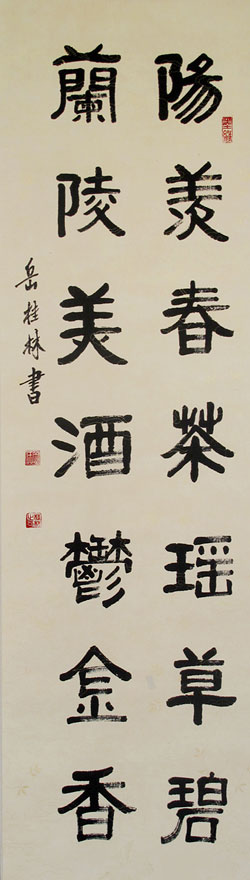 陽羨春茶瑶草碧
蘭陵美酒鬱金香
岳桂林書